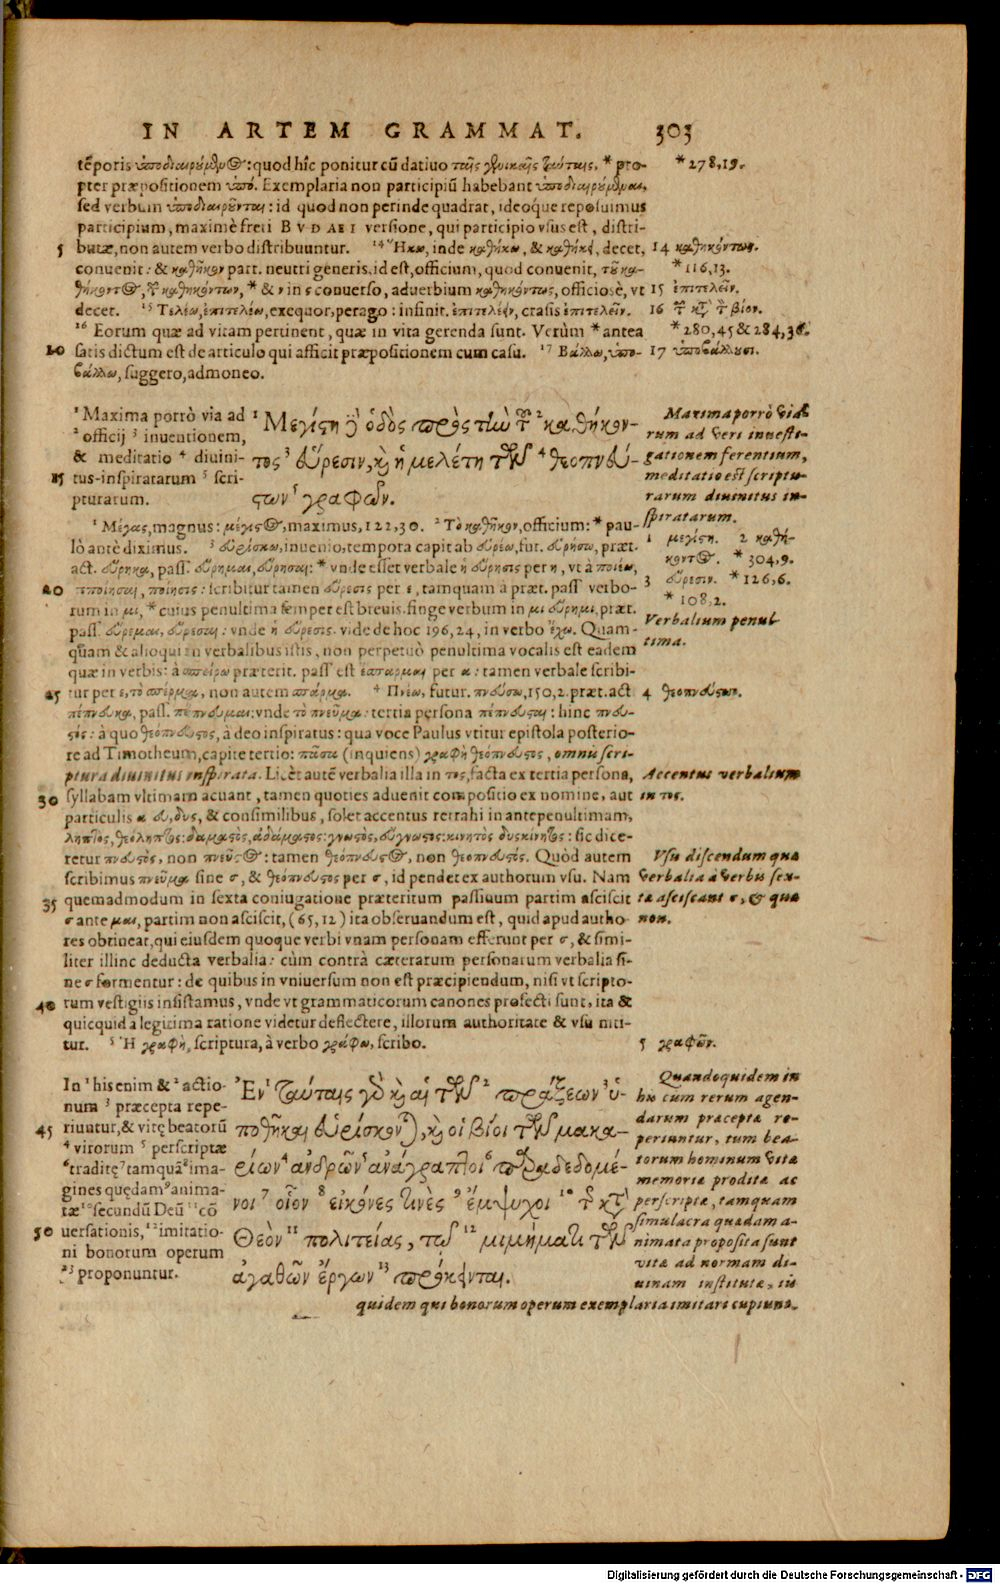 IN ARTEM GRAMMAT. 303
tẽporis ὑποδιαιρούμενος: quod hîc ponitur cũ dativo ταῖς γενικαῖς ταύταις. * pro-
pter præpositionem ὑπό. Exemplaria non participiũ habebant ὑποδιαιρούμεναι,
sed verbum ὑποδιαιροῦνται: id quod non perinde quadrat, ideóque reposuimus
participium, maximè freti BVDAEI versione, qui participio vsus est, distri-
5 butæ, non autem verbo distribuuntur. 14 Ἥκω, inde καθήκω, & καθήκει, decet,
convenit: & καθῆκον part. neutri generis, id est, officium, quod convenit, τοῦ κα-
θήκοντος, τῶν καθηκόντων, * & ν in ς converso, adverbium καθηκόντως, officiosè, vt
decet. 15 Τελέω, ἐπιτελέω, exequor, perago: infinit. ἐπιτελέειν, crasis ἐπιτελεῖν.
16 Eorum quæ ad vitam pertinent, quæ in vita gerenda sunt. Verùm * antea
10 satis dictum est de articulo qui afficit præpositionem cum casu. 17 Βάλλω, ὑπο-
βάλλω, suggero, admoneo.
* 278,19.
14 καθηκόντως.
* 116,13.
15 ἐπιτελεῖν.
16 τῶν κατὰ τὸν βίον.
* 280,45 & 284,38.
17 ὑποβάλλουσι.
1 Maxima porrò via ad
2 officij 3 inventionem,
& meditatio 4 divini-
15 tus-inspiratarum 5 scri-
pturarum.
1 Μεγίστη δὲ ὁδὸς πρὸς τὴν τοῦ 2 καθήκον-
τος 3 εὕρεσιν, καὶ ἡ μελέτη τῶν 4 θεοπνεύ-
στων 5 γραφῶν.
Maxima porrò via
rum ad veri investi-
gationem ferentium,
meditatio est scriptu-
rarum divinitus in-
spiratarum.
1 Μέγας, magnus: μέγιστος, maximus, 122,30. 2 Τὸ καθῆκον, officium: * pau-
lò antè diximus. 3 Εὑρίσκω, invenio, tempora capit ab εὑρέω, fut. εὑρήσω, præt.
act. εὕρηκα, pass. εὕρημαι, εὕρησαι: * vnde esset verbale ἡ εὕρησις per η, vt à ποιέω,
20 πεποίησαι, ποίησις: scribitur tamen εὕρεσις per ε, tamquam à præt. pass verbo-
rum in μι, * cuius penultima semper est brevis. finge verbum in μι εὕρημι, præt.
pass. εὕρεμαι, εὕρεσαι: vnde ἡ εὕρεσις. vide de hoc 196,24, in verbo ἔχω. Quam-
quam & alioqui in verbalibus istis, non perpetuò penultima vocalis est eadem
quæ in verbis: à σπείρω præterit. pass est ἔσπαρμαι per α: tamen verbale scribi-
25 tur per ε, τὸ σπέρμα, non autem σπάρμα. 4 Πνέω, futur. πνεύσω, 150,2. præt. act
πέπνευκα, pass. πέπνευμαι: vnde τὸ πνεῦμα: tertia persona πέπνευσται: hinc πνευ-
στός: à quo θεόπνευστος, à deo inspiratus: qua voce Paulus vtitur epistola posterio-
re ad Timotheum, capite tertio: πᾶσα (inquiens) γραφὴ θεόπνευστος, omnis scri-
ptura divinitus inspirata. Licèt autẽ verbalia illa in τος, facta ex tertia persona,
30 syllabam vltimam acuant, tamen quoties advenit compositio ex nomine, aut
particulis α εὐ, δυς, & consimilibus, solet accentus retrahi in antepenultimam,
ληπτὸς, θεόληπτος: δαμαστὸς, ἀδάμαστος: γνωστὸς, εὔγνωστος: κινητὸς δυσκίνητος: sic dice-
retur πνευστὸς, non πνεῦστος: tamen θεόπνευστος, non θεοπνευστός. Quòd autem
scribimus πνεῦμα sine σ, & θεόπνευστος per σ, id pendet ex authorum vsu. Nam
35 quemadmodum in sexta coniugatione præteritum passiuum partim asciscit
σ ante μαι, partim non asciscit, (65,12) ita observandum est, quid apud autho-
res obtineat, qui eiusdem quoque verbi vnam personam efferunt per σ, & simi-
liter illinc deducta verbalia: cùm contrà cæterarum personarum verbalia si-
ne σ formentur: de quibus in vniversum non est præcipiendum, nisi vt scripto-
40 rum vestigiis insistamus, vnde vt grammaticorum canones profecti sunt, ita &
quicquid a legitima ratione videtur deflectere, illorum authoritate & vsu niti-
tur. 5 Ἡ γραφὴ, scriptura, à verbo γράφω, scribo.
1 μεγίστη. 2 καθή-
κοντος. * 304,9.
3 εὕρεσιν. * 126,6.
* 108,2.
Verbalium penul-
tima.
4 θεοπνεύστων.
Accentus verbalium
in τος.
Vsu discendum quæ
verbalia à verbis sex-
tæ asciscant σ, & quæ
non.
5 γραφῶν.
In 1 his enim & 2 actio-
num 3 præcepta repe-
45 riuntur, & vitę beatorũ
4 virorum 5 perscriptæ
6 traditę 7 tamquã 8 ima-
gines quędam 9 anima-
tæ 10 secundũ Deũ 11 cõ
50 versationis, 12 imitatio-
ni bonorum operum
13 proponuntur.
Ἐν 1 ταύταις γὰρ καὶ αἱ τῶν 2 πράξεων 3 ὑ-
ποθῆκαι εὑρίσκονται, καὶ οἱ βίοι τῶν μακα-
ρίων 4 ἀνδρῶν 5 ἀνάγραπτοι 6 παραδεδομέ-
νοι 7 οἷον 8 εἰκόνες τινὲς 9 ἔμψυχοι 10 τῆς κατὰ
Θεὸν 11 πολιτείας, τῷ 12 μιμήματι τῶν
ἀγαθῶν ἔργων 13 πρόκεινται.
Quandoquidem in
his cum rerum agen-
darum præcepta re-
periuntur, tum bea-
torum hominum vitæ
memoriæ proditæ ac
perscriptæ, tamquam
simulacra quædam a-
nimata proposita sunt
vitæ ad normam di-
uinam institutæ, iis
quidem qui bonorum operum exemplaria imitari cupiunt.
Digitalisierung gefördert durch die Deutsche Forschungsgemeinschaft - DFG